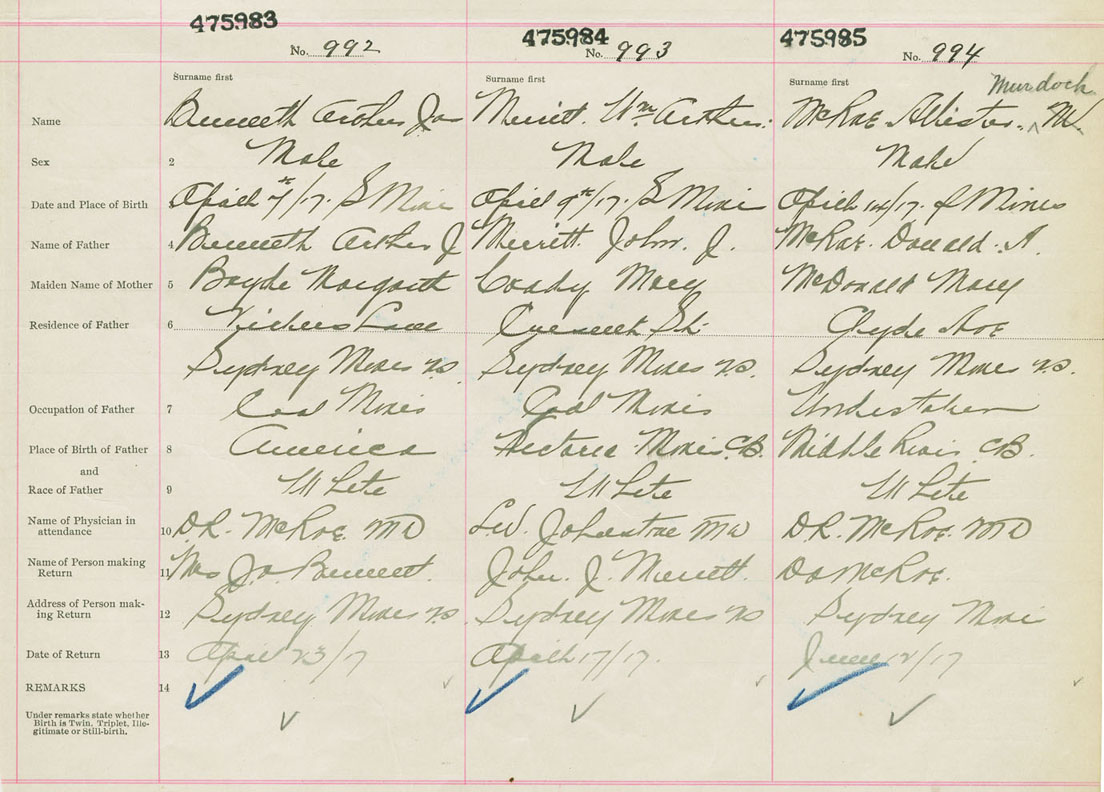 475983 475984 475985
No. 992 No. 993 No. 994
Surname first Surname first Surname first Murdock
Name Bennett Arthur Jas Merritt. Wm Arthur. McRae Alister. ^ M.
Sex 2 Male Male Male
Date and Place of Birth 3 April 7th/17. S Mines April 9th/17. S Mines April 14/17. S Mines
Name of Father 4 Bennett Arthur J Merritt. John. J. McRae. Donald. A.
Maiden Name of Mother 5 Boyde Margaret Coady Mary McDonald Mary
Residence of Father 6 Vickers Lane Crescent St. Clyde Ave
Sydney Mines N.S. Sydney Mines N.S. Sydney Mines N.S.
Occupation of Father 7 Coal Miner Coal Miner Undertaker
Place of Birth of Father 8 America Victoria Mines. C.B. Middle River. C.B.
and
Race of Father 9 White White White
Name of Physician in
attendance 10 D.R. McRae. MD L.W. Johnstone MD D.R. McRae. MD
Name of Person making
Return 11 Mrs Bennett. John. J. Merrett. D A McRae.
Address of Person mak-
ing Return 12 Sydney Mines N.S. Sydney Mines N.S. Sydney Mines
Date of Return 13 April 23/17 April 17/17. June 12/17
REMARKS 14
Under remarks state whether
Birth is Twin, Triplet, Ille-
gitimate or Still-birth.